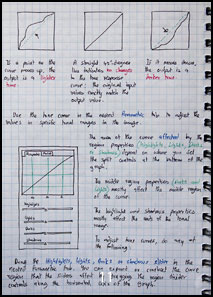 If a point on the
curve moves up, the
output is a lighter
tone
A straight 45° degree
line indicates no changes
to the tone response
curve: the original input
values exactly match the
output value.
If it moves down,
the output is a
darker tone
Use the tone curve in the nested Parametric tab to adjust the
values in specific tonal ranges in the image.
The area of the curve affected by the
region properties (Highlights, Lights, Darks
or Shadows) depend on where you set
the split controls at the bottom of the
graph.
The middle region properties (Darks and
Lights) mostly affect the middle region
of the curve.
The highlight and Shadows properties
mostly affect the ends of the tonal
range.
To adjust tone curves, do any of
the following:
Highlights
Lights
Darks
Shadows
Drag the Highlights, Lights, Darks or Shadows slider in the
nested Parametric tab. You can expand or contract the curve
regions that the sliders affect by dragging the region divider
controls along the horizontal axis of the graph.